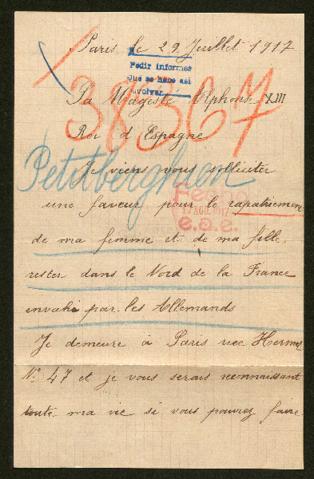 Paris, le 29 Juillet 1917
Pedir informes
Que se hace así
38567
Sa Majesté Alphonse XIII
Roi d'Espagne
Je viens vous solliciter
Petitberghien
une faveur pour le rapatriement
Fecho
1 AGO. 1917
e.a.e.
de ma femme et de ma fille,
rester dans le Nord de la France
envahi par les Allemands
Je demeure à Paris rue Hermel
No 47 et je vous serais reconnaissant
toute ma vie si vous pouvez faire